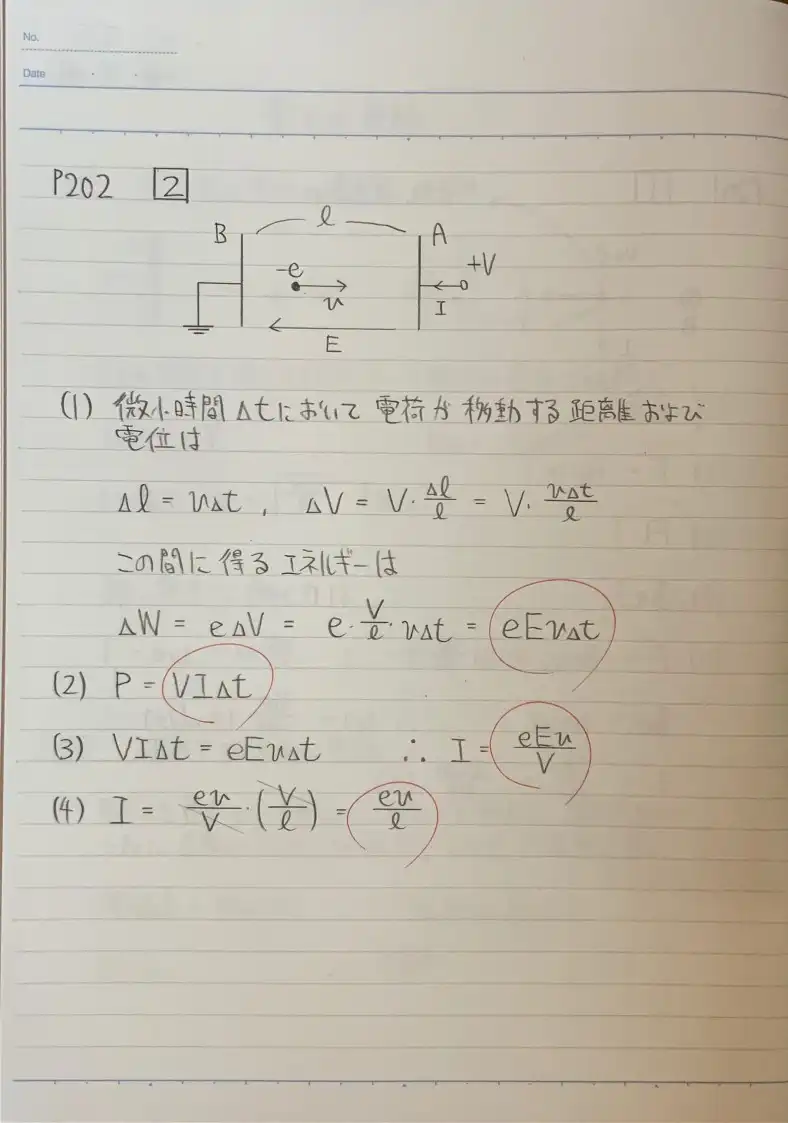 No.
Date
P202 2
B l A
-e +V
u I
E
(1) 微小時間Δtにおいて電荷が移動する距離および
電位は
Δl = uΔt , ΔV = V・Δl/l = V・uΔt/l
この間に得るエネルギーは
ΔW = eΔV = e・V/l・uΔt = eEuΔt
(2) P = VIΔt
(3) VIΔt = eEuΔt ∴ I = eEu/V
(4) I = eu/V・(V/l) = eu/l